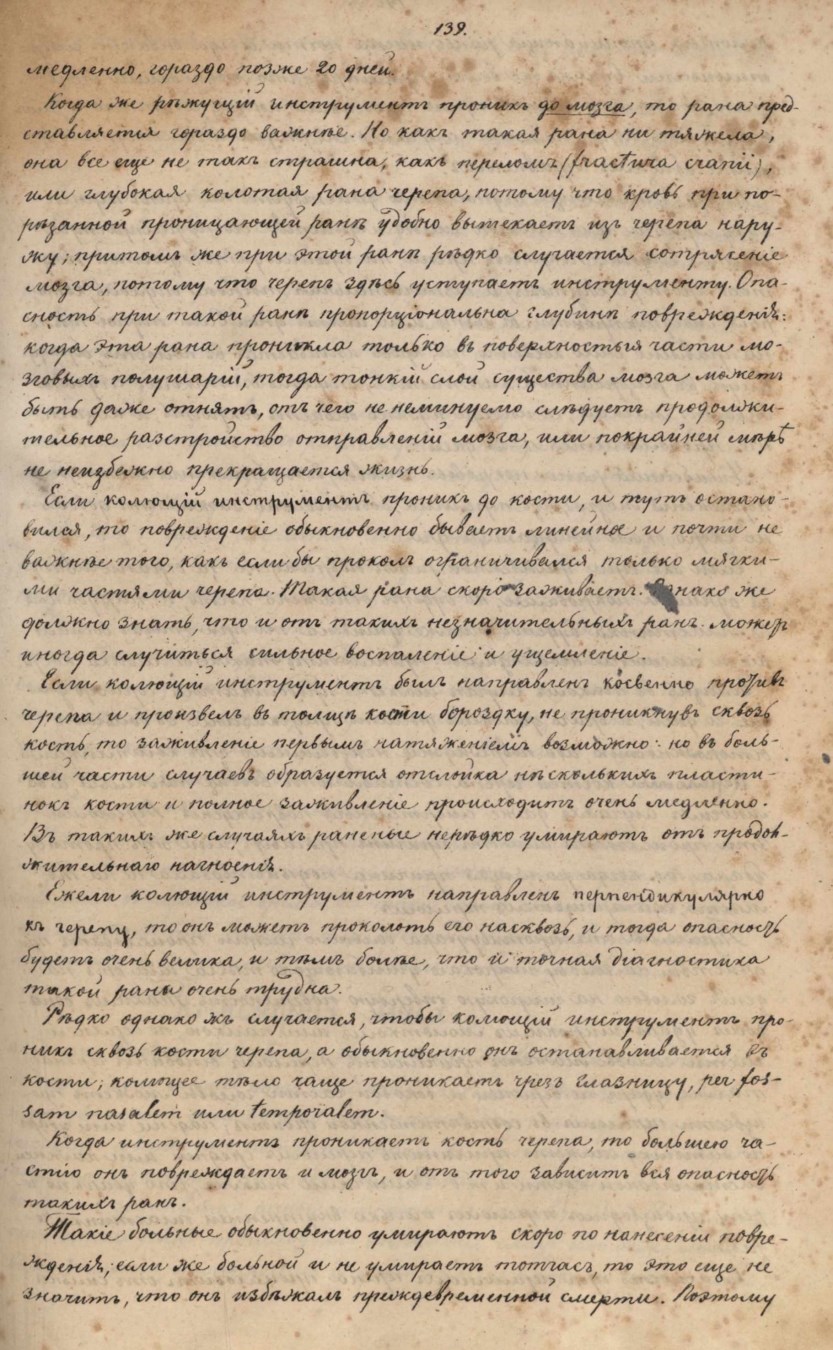 139.
медленно, гораздо позже 20 дней.
Когда же рѣжущій инструментъ проникъ до мозга, то рана пред-
ставляется гораздо важнѣе. Но какъ такая рана ни тяжела,
она все еще не такъ страшна, какъ переломъ (fractura cranii),
или глубокая колотая рана черепа, потому что кровь при по-
рѣзанной проницающей ранѣ удобно вытекаетъ изъ черепа нару-
жу; притомъ же при этой ранѣ рѣдко случается сотрясеніе
мозга, потому что черепъ здѣсь уступаетъ инструменту. Опа-
сность при такой ранѣ пропорціональна глубинѣ поврежденія:
когда эта рана проникла только въ поверхностыя части мо-
зговыхъ полушарій, тогда тонкій слой существа мозга можетъ
быть даже отнятъ, отъ чего не неминуемо слѣдуетъ продолжи-
тельное разстройство отправленій мозга, или покрайней мѣрѣ
не неизбежно прекращается жизнь.
Если колющій инструментъ проникъ до кости, и тутъ остано-
вился, то поврежденіе обыкновенно бываетъ линейное и почти не
важнѣе того, какъ если бы проколъ ограничивался только мягки-
ми частями черепа. Такая рана скоро заживаетъ. Однако же
должно знать, что и отъ такихъ незначительныхъ ранъ можетъ
иногда случиться сильное воспаленіе и ущемленіе.
Если колющій инструментъ былъ направленъ косвенно противъ
черепа и произвелъ въ толщѣ кости бороздку, не проникнувъ сквозь
кость, то заживленіе первымъ натяженіемъ возможно: но въ боль-
шей части случаевъ образуется отслойка нѣсколькихъ пласти-
нокъ кости и полное заживленіе происходитъ очень медленно.
Въ такихъ же случаяхъ раненые нерѣдко умираютъ отъ продол-
жительнаго нагноенія.
Ежели колющій инструментъ направленъ перпендикулярно
къ черепу, то онъ можетъ проколоть его насквозь, и тогда опасность
будетъ очень велика, и тѣмъ болѣе, что и точная діагностика
такой раны очень трудна.
Рѣдко однако жъ случается, чтобы колющій инструментъ про-
никъ сквозь кости черепа, а обыкновенно онъ останавливается въ
кости; колющее тѣло чаще проникаетъ чрезъ глазницу, per fos-
sam nasalem или temporalem.
Когда инструментъ проникаетъ кость черепа, то большею ча-
стію онъ повреждаетъ и мозгъ, и отъ того зависитъ вся опасность
такихъ ранъ.
Такіе больные обыкновенно умираютъ скоро по нанесеніи повре-
жденія; если же больной и не умираетъ тотчасъ, то это еще не
значитъ, что онъ избѣжалъ преждевременной смерти. Поэтому